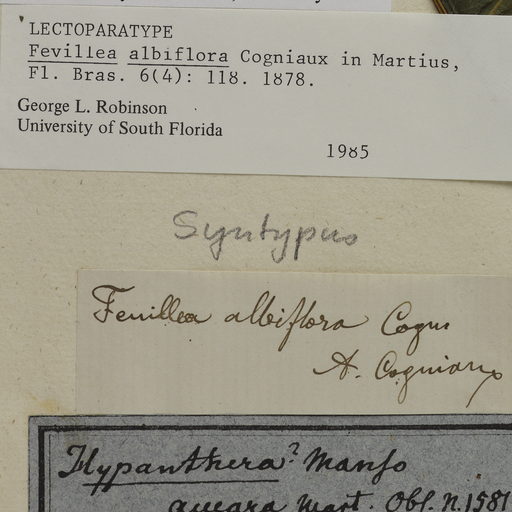 LECTOPARATYPE
Fevillea albiflora Cogniaux in Martius,
Fl. Bras. 6(4): 118. 1878.
George L. Robinson
University of South Florida
1985
Syntypus
Feuillea albiflora Cogn
A. Cogniaux
Hypanthera? Manso
Mart. Obs. n. 1581